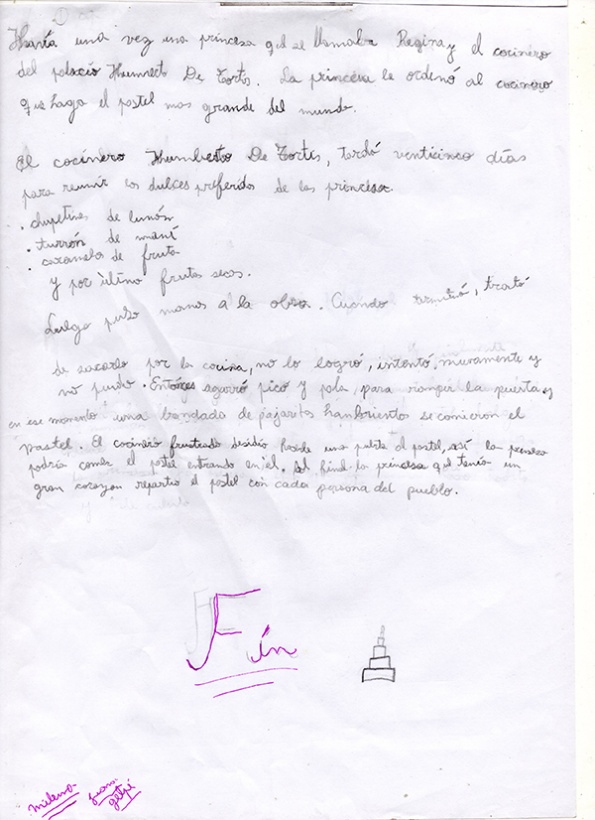 Había una vez una princesa que se llamaba Regina y el cocinero
del palacio Humberto De Tortis. La princesa le ordenó al cocinero
que haga el pastel mas grande del mundo.
El cocinero Humberto De Tortis, tardó venticinco días
para reunir los dulces preferidos de las princesa
. chupetines de limón
. turrón de maní
. caramelos de fruta
y por último frutas secas.
Luego puso manos a la obra. Cuando terminó, trató
de sacarlo por la cocina, no lo logró, intentó, nuevamente y
no pudo. Entonces agarró pico y pala, para romper la puerta y
en ese momento una bandada de pajaritos hambrientos se comieron el
pastel. El cocinero frustrado desidio una al pastel, así la princesa
podría comer el pastel entrando en el. Al final la princesa que tenía un
gran corazon repartio el pastel con cada persona del pueblo.
Fin
milena